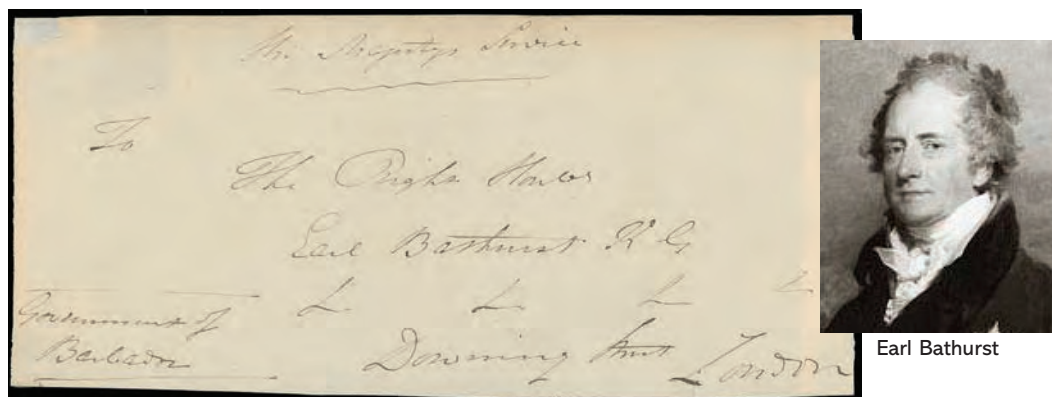 His Majestys Service
To
The Right Honble
Earl Bathurst K G
&c &c &c &c
Government of
Barbados
Downing Street London
Earl Bathurst